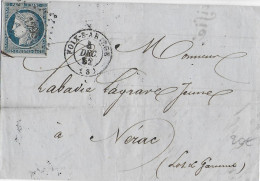 FOIX-S-ARIEGE
4
DEC
52
(8)
Monsieur
Labadie Lagrave Jeune
à Nérac
(Lot et Garonne)